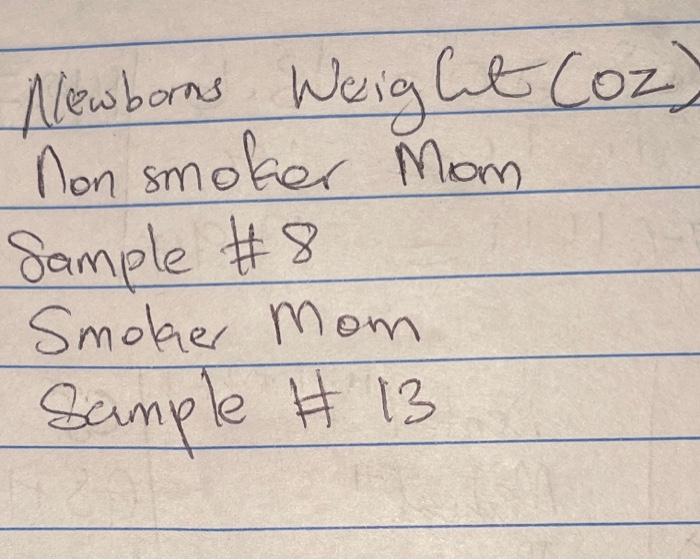 Newborns Weight (oz)
Non smoker Mom
Sample # 8
Smoker Mom
Sample # 13